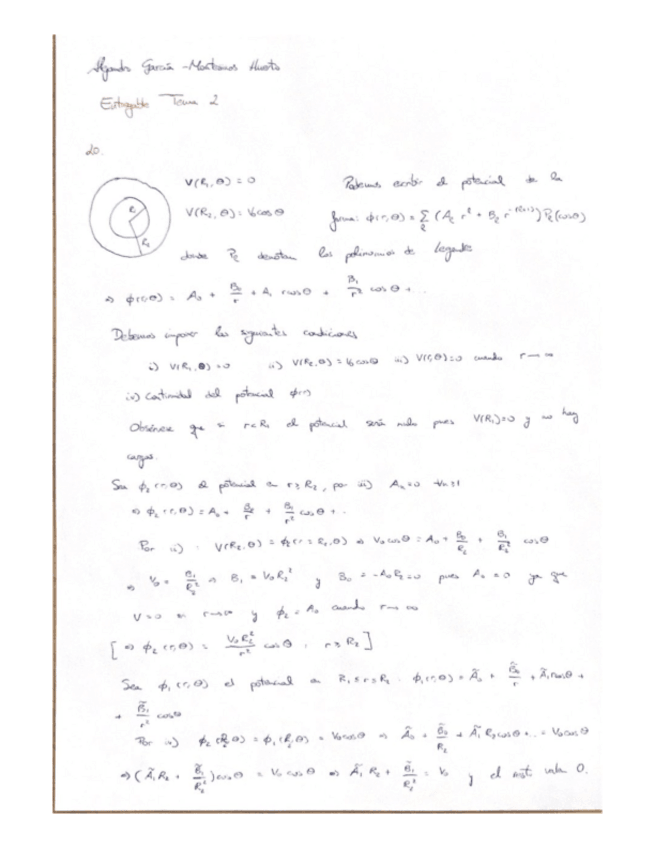 Alejandro García-Montesinos
Entregable Tema 2
20.
V(R₁,θ) = 0 Podemos escribir el potencial de la
V(R₂,θ) = V₀cosθ forma: φ(r,θ) = Σ_ℓ (A_ℓ r^ℓ + B_ℓ r^-(ℓ+1)) P_ℓ(cosθ)
R₁
R₂
donde P_ℓ denotan los polinomios de Legendre
⇒ φ(r,θ) = A₀ + B₀/r + A₁ r cosθ + B₁/r² cosθ + ..
Debemos imponer las siguientes condiciones
i) V(R₁,θ) = 0 ii) V(R₂,θ) = V₀cosθ iii) V(r,θ)=0 cuando r→∞
iv) Continuidad del potencial φ(r)
Obsérvese que si r<R₁ el potencial será nulo pues V(R₁)=0 y no hay
cargas.
Sea φ₂(r,θ) el potencial en r≥R₂, por iii) Aₙ=0 ∀n≥1
⇒ φ₂(r,θ) = A₀ + B₀/r + B₁/r² cosθ + ..
Por ii) : V(R₂,θ) = φ₂(r=R₂,θ) ⇒ V₀cosθ = A₀ + B₀/R₂ + B₁/R₂² cosθ
⇒ V₀ = B₁/R₂² ⇒ B₁ = V₀R₂² y B₀ = -A₀R₂ = 0 pues A₀ = 0 ya que
V=0 en r→∞ y φ₂ = A₀ cuando r→∞
[ ⇒ φ₂(r,θ) = V₀R₂²/r² cosθ , r≥R₂ ]
Sea φ₁(r,θ) el potencial en R₁≤r≤R₂ . φ₁(r,θ) = Ã₀ + B̃₀/r + Ã₁ r cosθ +
+ B̃₁/r² cosθ
Por ii) φ₂(R₂,θ) = φ₁(R₂,θ) = V₀cosθ ⇒ Ã₀ + B̃₀/R₂ + Ã₁ R₂cosθ + .. = V₀cosθ
⇒ (Ã₁R₂ + B̃₁/R₂²)cosθ = V₀cosθ ⇒ Ã₁R₂ + B̃₁/R₂² = V₀ y el vale 0.